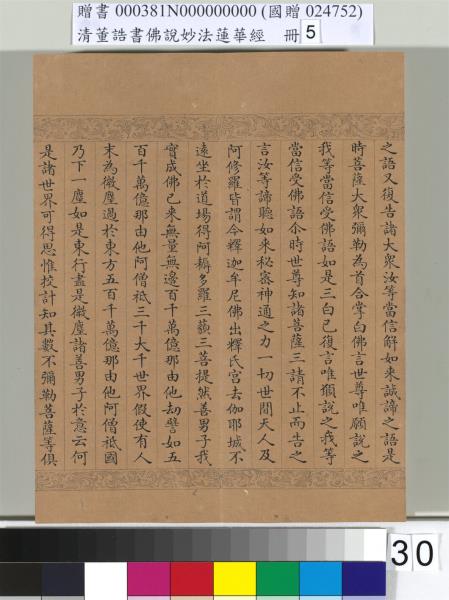 贈書 000381N000000000 (國贈 024752)
清董誥書佛說妙法蓮華經 冊 5
之語又復告諸大眾汝等當信解如來誠諦之語是
時菩薩大眾彌勒為首合掌白佛言世尊唯願說之
我等當信受佛語如是三白已復言唯願說之我等
當信受佛語尒時世尊知諸菩薩三請不止而告之
言汝等諦聽如來秘密神通之力一切世間天人及
阿修羅皆謂今釋迦牟尼佛出釋氏宮去伽耶城不
遠坐於道場得阿耨多羅三藐三菩提然善男子我
實成佛已來無量無邊百千萬億那由他劫譬如五
百千萬億那由他阿僧祇三千大千世界假使有人
末為微塵過於東方五百千萬億那由他阿僧祇國
乃下一塵如是東行盡是微塵諸善男子於意云何
是諸世界可得思惟校計知其數不彌勒菩薩等俱
30